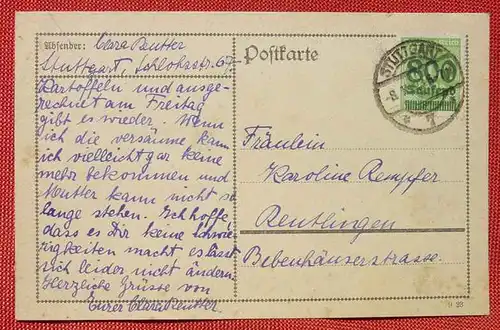 Absender: Clara Reutter
Stuttgart, Schloßstr. 67.
Kartoffeln und ausge-
rechnet am Freitag
gibt es wieder. Wenn
ich die versäume kann
ich vielleicht gar keine
mehr bekommen und
Mutter kann nicht so
lange stehen. Ich hoffe
dass es Dir keine Schwie-
rigkeiten macht es lässt
sich leider nicht ändern.
Herzliche Grüsse von
Eurer Clara Reutter.
Postkarte
STUTTGART
800
Tausend
Fräulein
Karoline Rempfer
Reutlingen
Bebenhäuserstrasse.
9 23